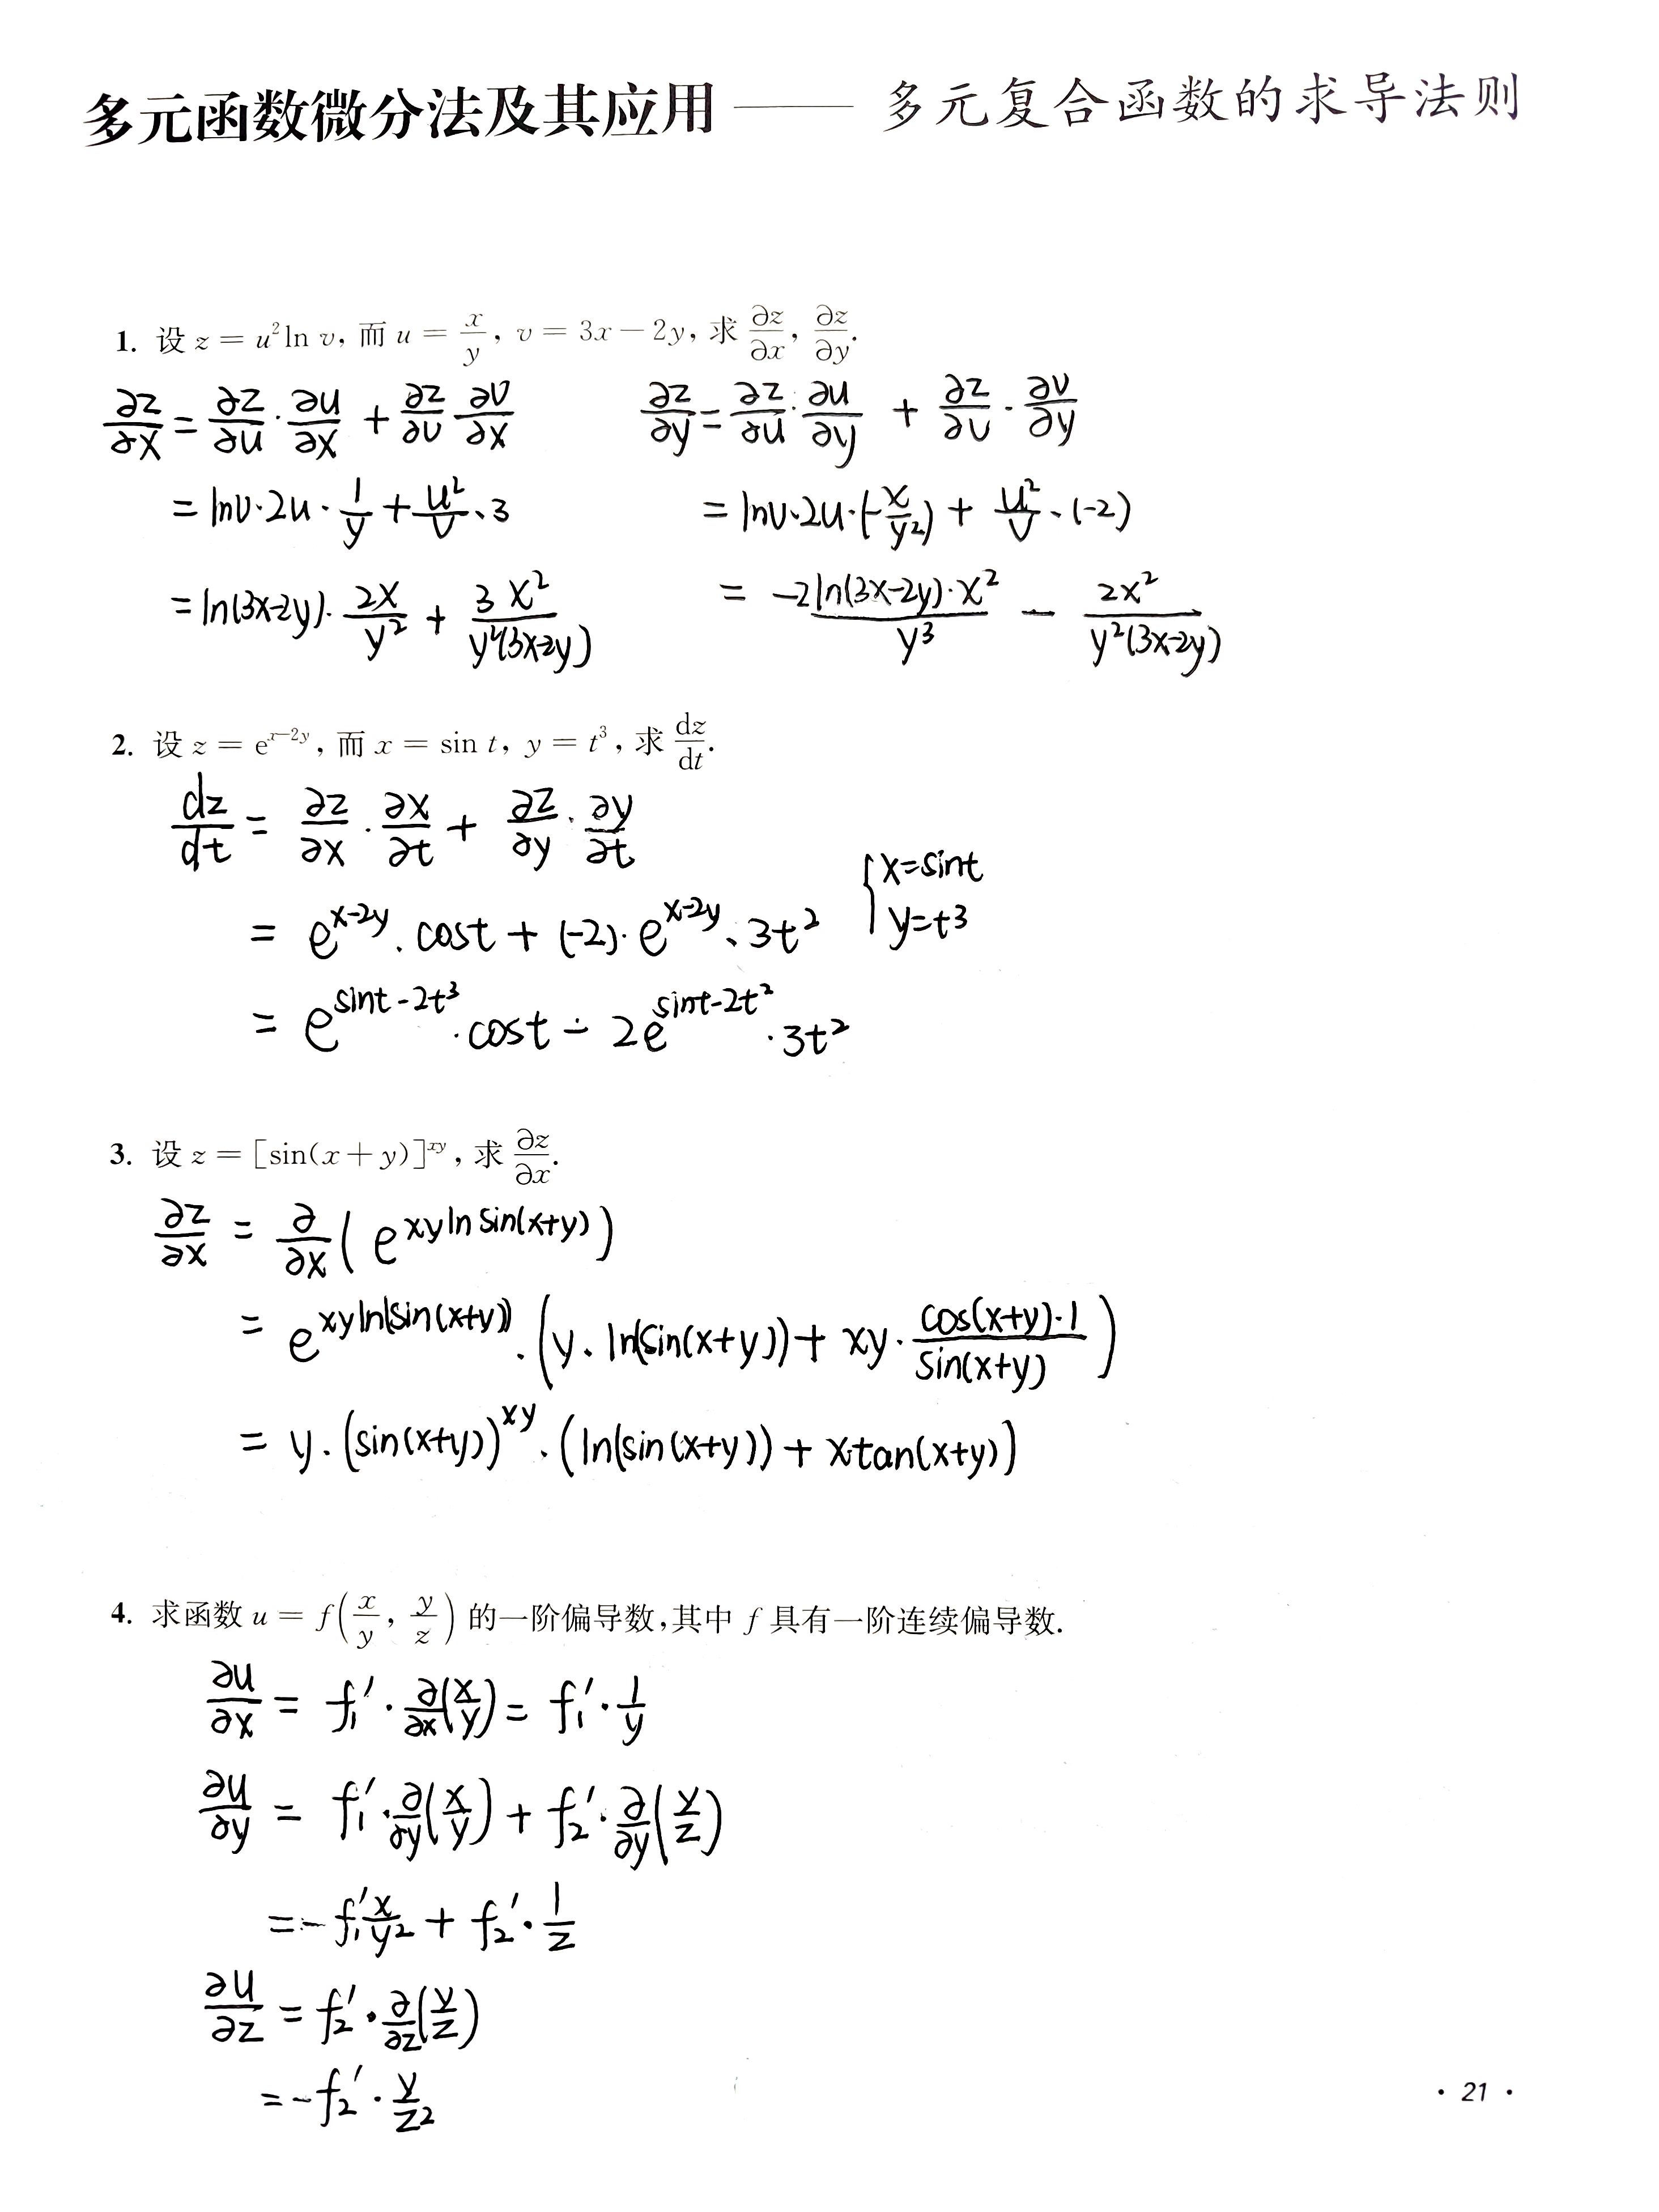 多元函数微分法及其应用 —— 多元复合函数的求导法则
1. 设 z = u² ln v, 而 u = x/y, v = 3x − 2y, 求 ∂z/∂x, ∂z/∂y.
∂z/∂x = ∂z/∂u · ∂u/∂x + ∂z/∂v ∂v/∂x
∂z/∂y = ∂z/∂u · ∂u/∂y + ∂z/∂v · ∂v/∂y
= lnv·2u·1/y + u²/v·3
= lnv·2u·(-x/y²) + u²/v·(-2)
= ln(3x-2y)·2x/y² + 3x²/y²(3x-2y)
= -2ln(3x-2y)·x²/y³ - 2x²/y²(3x-2y)
2. 设 z = e^(x−2y), 而 x = sin t, y = t³, 求 dz/dt.
dz/dt = ∂z/∂x · ∂x/∂t + ∂z/∂y · ∂y/∂t
{x=sint
y=t3
= e^(x-2y)·cost + (-2)·e^(x-2y)·3t²
= e^(sint-2t³)·cost - 2e^(sint-2t²)·3t²
3. 设 z = [sin(x + y)]^(xy), 求 ∂z/∂x.
∂z/∂x = ∂/∂x (e^(xy ln sin(x+y)))
= e^(xy ln(sin(x+y)))·(y·ln(sin(x+y)) + xy·cos(x+y)·1/sin(x+y))
= y·(sin(x+y))^(xy)·(ln(sin(x+y)) + x·tan(x+y))
4. 求函数 u = f(x/y, y/z) 的一阶偏导数,其中 f 具有一阶连续偏导数.
∂u/∂x = f₁′·∂/∂x(x/y) = f₁′·1/y
∂u/∂y = f₁′·∂/∂y(x/y) + f₂′·∂/∂y(y/z)
= -f₁′x/y² + f₂′·1/z
∂u/∂z = f₂′·∂/∂z(y/z)
= -f₂′·y/z²
· 21 ·